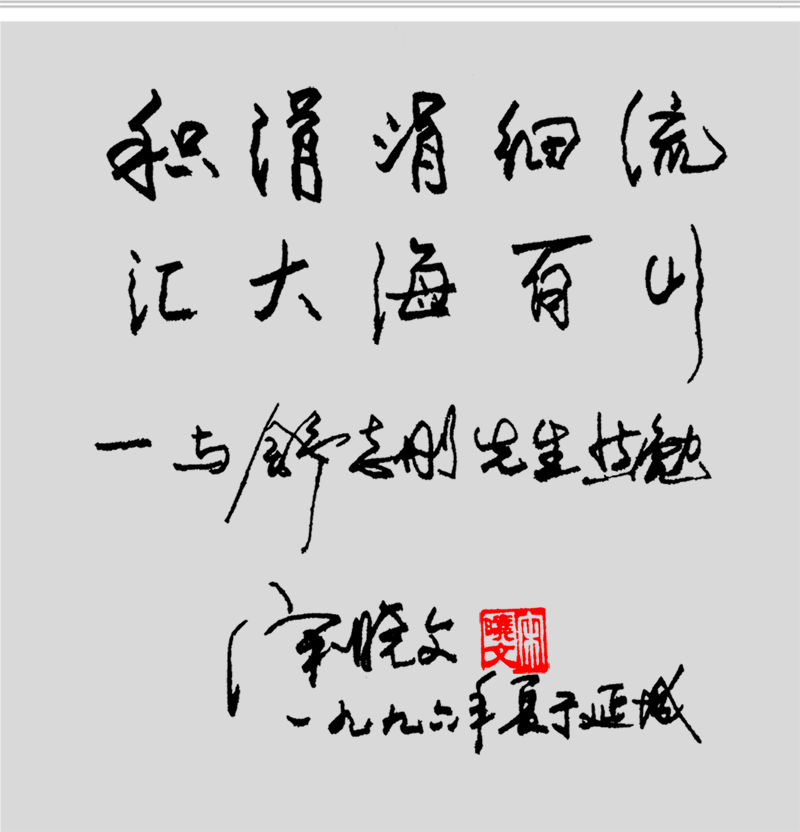 积涓涓细流
汇大海百川
一与舒志刚先生共勉
宋晓文
宋曉文
一九九六年夏于延城